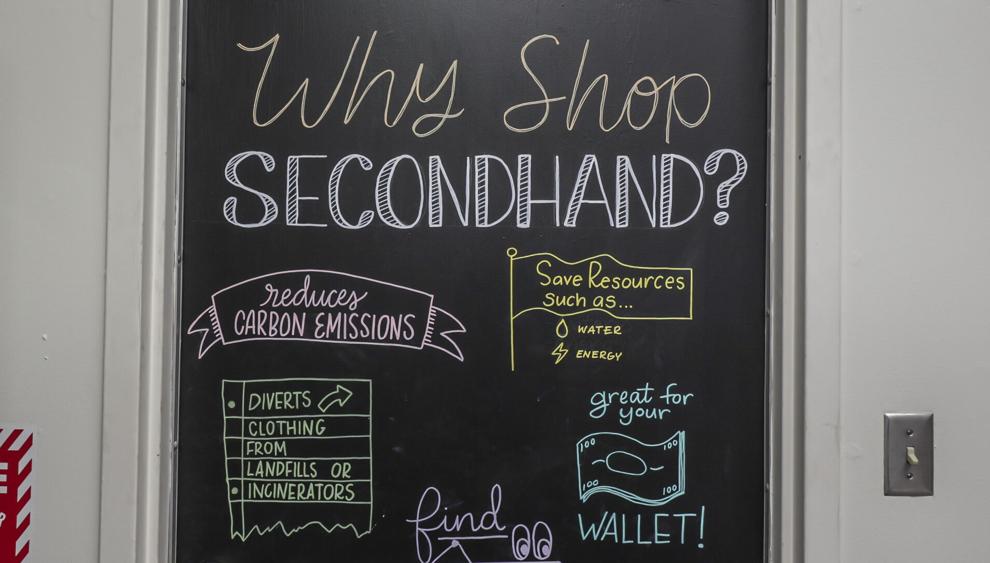 Why Shop
SECONDHAND?
reduces
CARBON EMISSIONS
Save Resources
such as...
WATER
ENERGY
DIVERTS
CLOTHING
FROM
LANDFILLS OR
INCINERATORS
great for
your
100 100
100
WALLET!
find